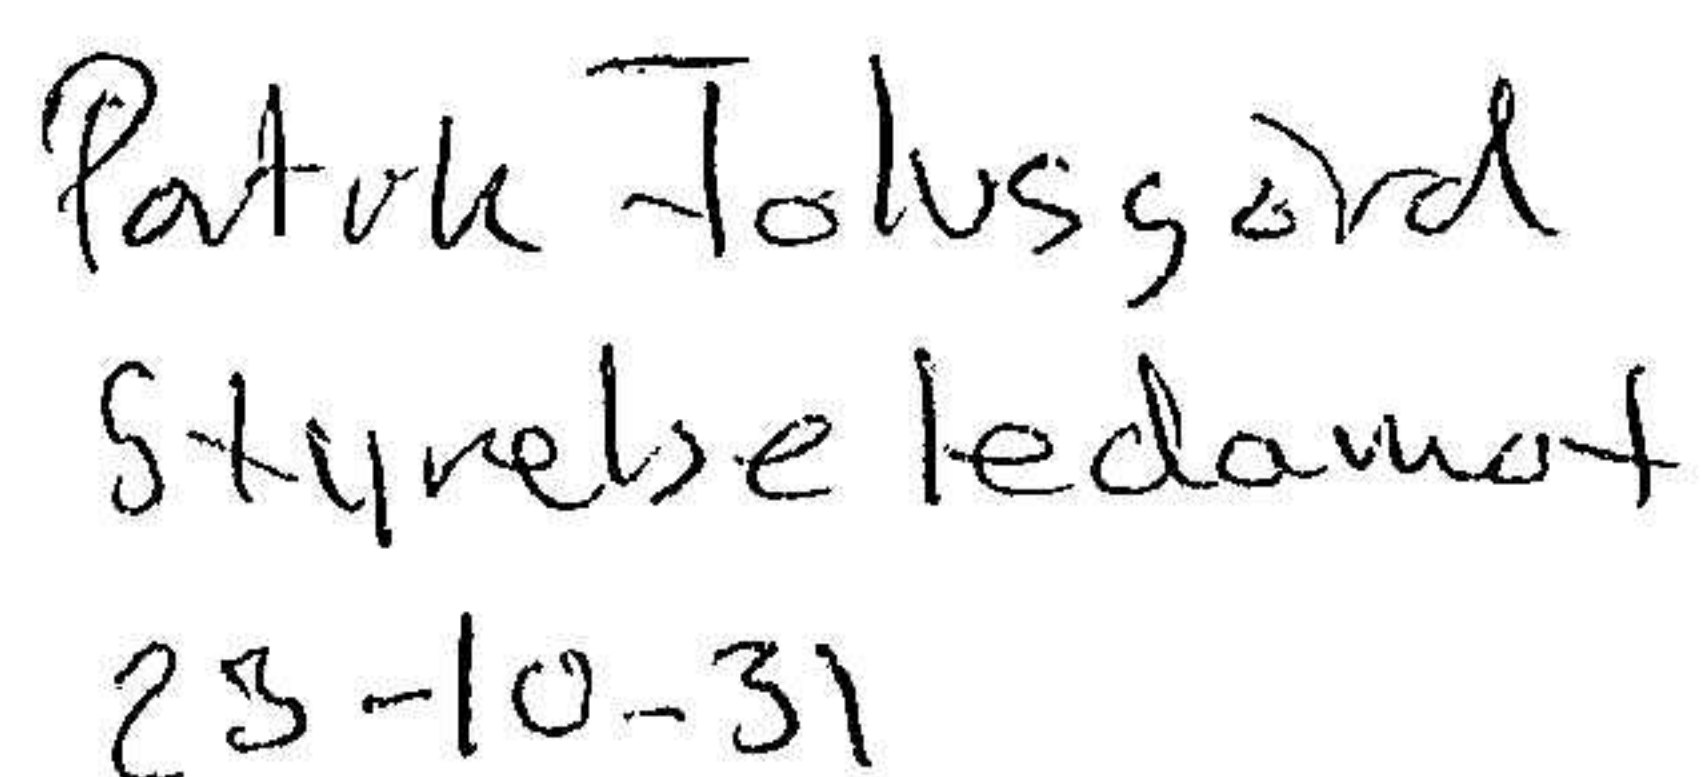 Patrik Tolvsgård
Styrelseledamot
23-10-31